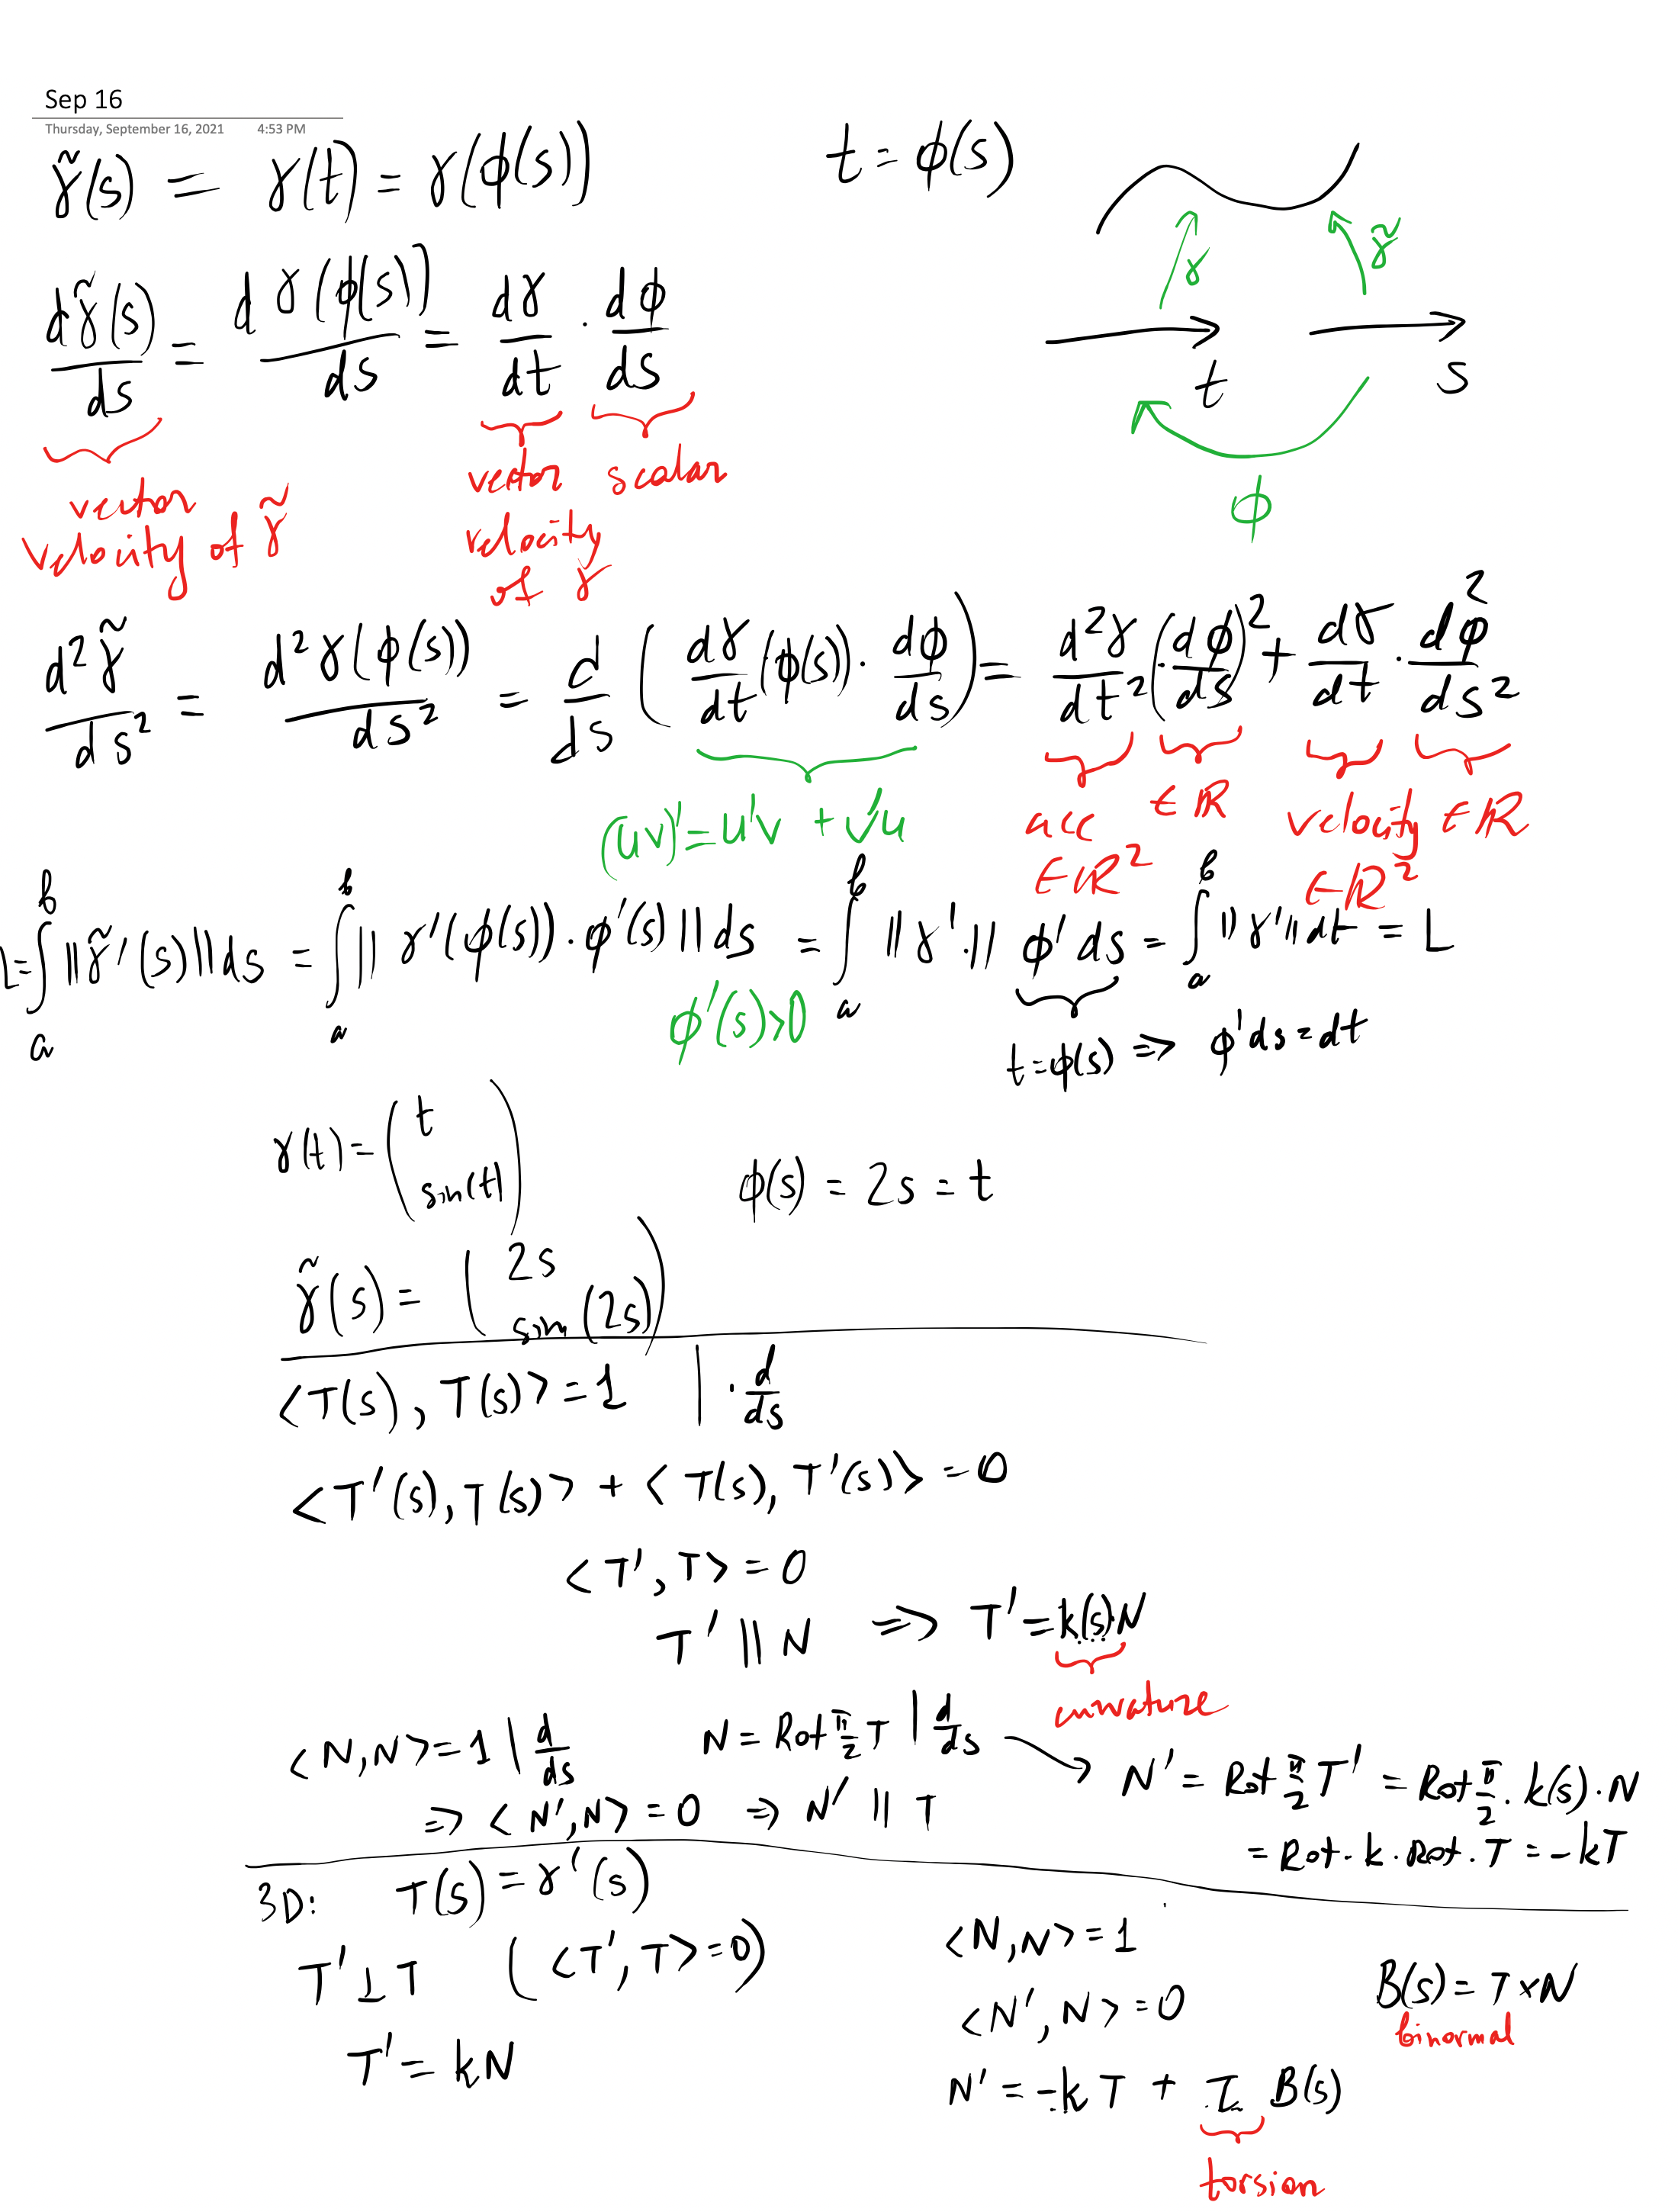 Sep 16
Thursday, September 16, 2021 4:53 PM
γ̃(s) = γ(t) = γ(φ(s)) t = φ(s)
γ γ̃
dγ̃(s)/ds = dγ(φ(s))/ds = dγ/dt · dφ/ds
t s
φ
vector vector scalar
velocity of γ̃ velocity
of γ
d²γ̃/ds² = d²γ(φ(s))/ds² = d/ds (dγ/dt(φ(s)) · dφ/ds) = d²γ/dt² (dφ/ds)² + dγ/dt · d²φ/ds²
(uv)' = u'v + v'u
acc ∈ℝ velocity ∈ℝ
∈ℝ² ∈ℝ²
L = ∫_a^b ||γ̃'(s)|| ds = ∫_a^b || γ'(φ(s)) · φ'(s) || ds = ∫_a^b ||γ'·|| φ' ds = ∫_a^b ||γ'|| dt = L
φ'(s)>0
t=φ(s) => φ'ds=dt
γ(t) = (t
sin(t)) φ(s) = 2s = t
γ̃(s) = (2s
sin(2s))
<T(s), T(s)> = 1 | · d/ds
<T'(s), T(s)> + <T(s), T'(s)> = 0
<T', T> = 0
T' || N => T' = k(s)·N
curvature
<N,N> = 1 | d/ds N = Rot π/2 T | d/ds → N' = Rot π/2 T' = Rot π/2 · k(s) · N
=> <N',N> = 0 => N' || T = Rot · k · Rot · T = -kT
3D: T(s) = γ'(s)
T' ⊥ T (<T',T> = 0) <N,N> = 1
<N',N> = 0 B(s) = T×N
binormal
T' = kN N' = -k T + τ B(s)
torsion